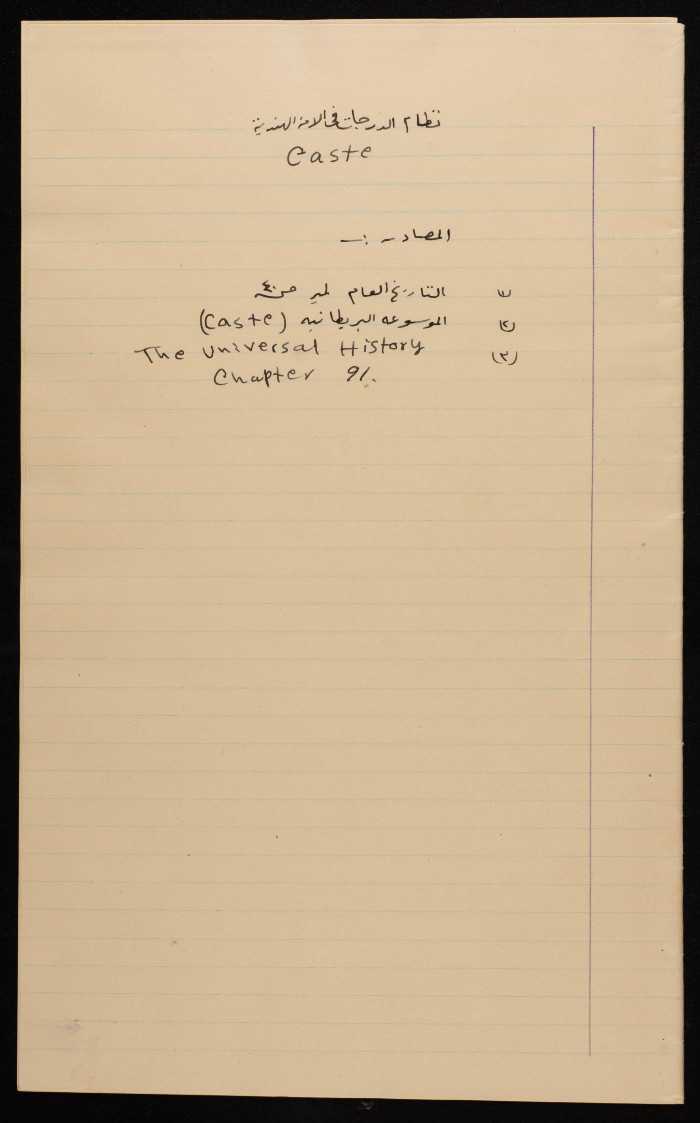 نظام الدرجات فى الامة الهندية
Caste
المصادر :ـ
(١) التاريخ العام لمير ص ٤٠
(٢) الموسوعه البريطانيه (Caste)
(٣) The Universal History
Chapter 91.